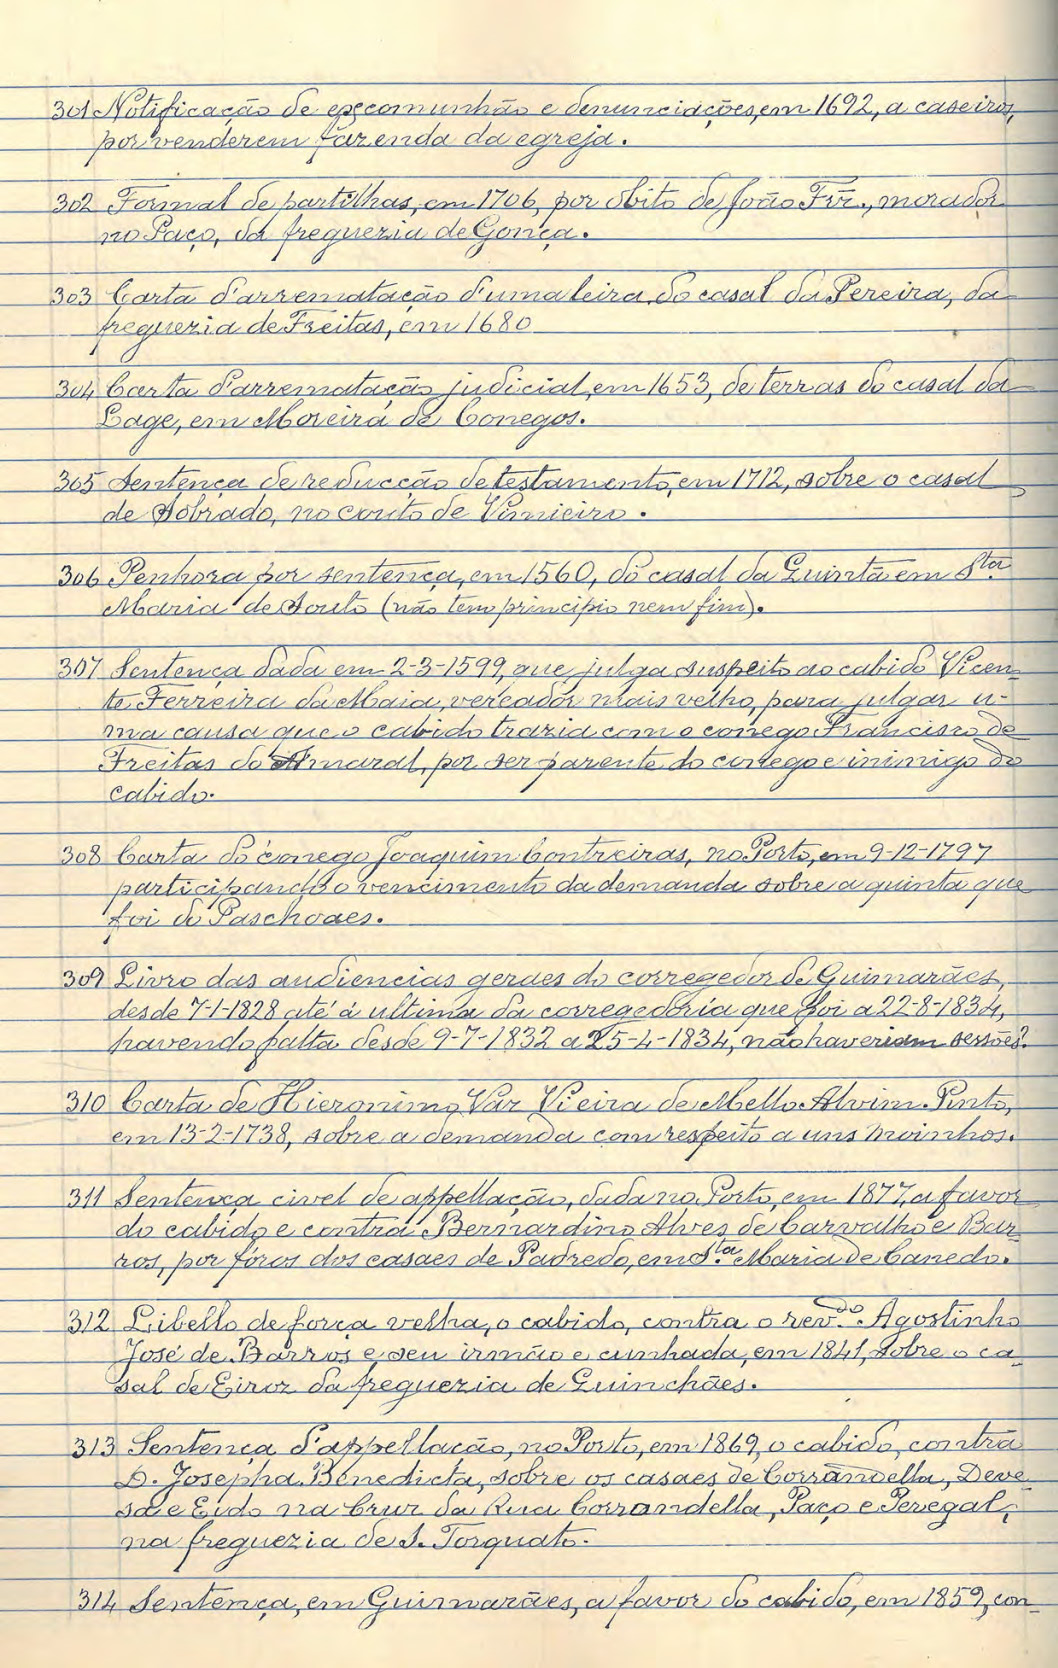 301 Notificação de excomunhão e denunciações, em 1692, a caseiros,
por venderem fazenda da egreja.
302 Formal de partilhas, em 1706, por obito de João Frz., morador
no Paço, da freguezia de Gonça.
303 Carta d'arrematação d'uma leira, do casal da Pereira, da
freguezia de Freitas, em 1680
304 Carta d'arrematação judicial, em 1653, de terras do casal da
Lage, em Moreira de Conegos.
305 Sentença de reducção de testamento, em 1712, sobre o casal
de Sobrado, no couto de Vimieiro.
306 Penhora por sentença, em 1560, do casal da Quintã em Sta
Maria de Souto (não tem principio nem fim).
307 Sentença dada em 2-3-1599, que julga suspeito ao cabido Vicen-
te Ferreira da Maia, vereador mais velho, para julgar u-
ma causa que o cabido trazia com o conego Francisco de
Freitas do Amaral, por ser parente do conego e inimigo do
cabido.
308 Carta do conego Joaquim Contreiras, no Porto, em 9-12-1797
participando o vencimento da demanda sobre a quinta que
foi do Paschoaes.
309 Livro das audiencias geraes do corregedor de Guimarães,
desde 7-1-1828 até á ultima da corregedoria que foi a 22-8-1834,
havendo falta desde 9-7-1832 a 25-4-1834, não haveriam sessões?
310 Carta de Hieronimo Vaz Vieira de Mello Alvim Pinto,
em 13-2-1738, sobre a demanda com respeito a uns moinhos.
311 Sentença civel de appellação, dada no Porto, em 1877, a favor
do cabido e contra Bernardino Alves de Carvalho e Bar-
ros, por fóros dos casaes de Padredo, em Sta. Maria de Canedo.
312 Libello de força velha, o cabido, contra o revdo. Agostinho
José de Barros e seu irmão e cunhada, em 1841, sobre o ca-
sal de Eiroz da freguezia de Guinchães.
313 Sentença d'appellação, no Porto, em 1869, o cabido, contra
D. Josepha Benedicta, sobre os casaes de Corrandella, Deve-
sa e Eido na Cruz da Rua Corrandella, Paço e Peregal,
na freguezia de S. Torquato.
314 Sentença, em Guimarães, a favor do cabido, em 1859, con-